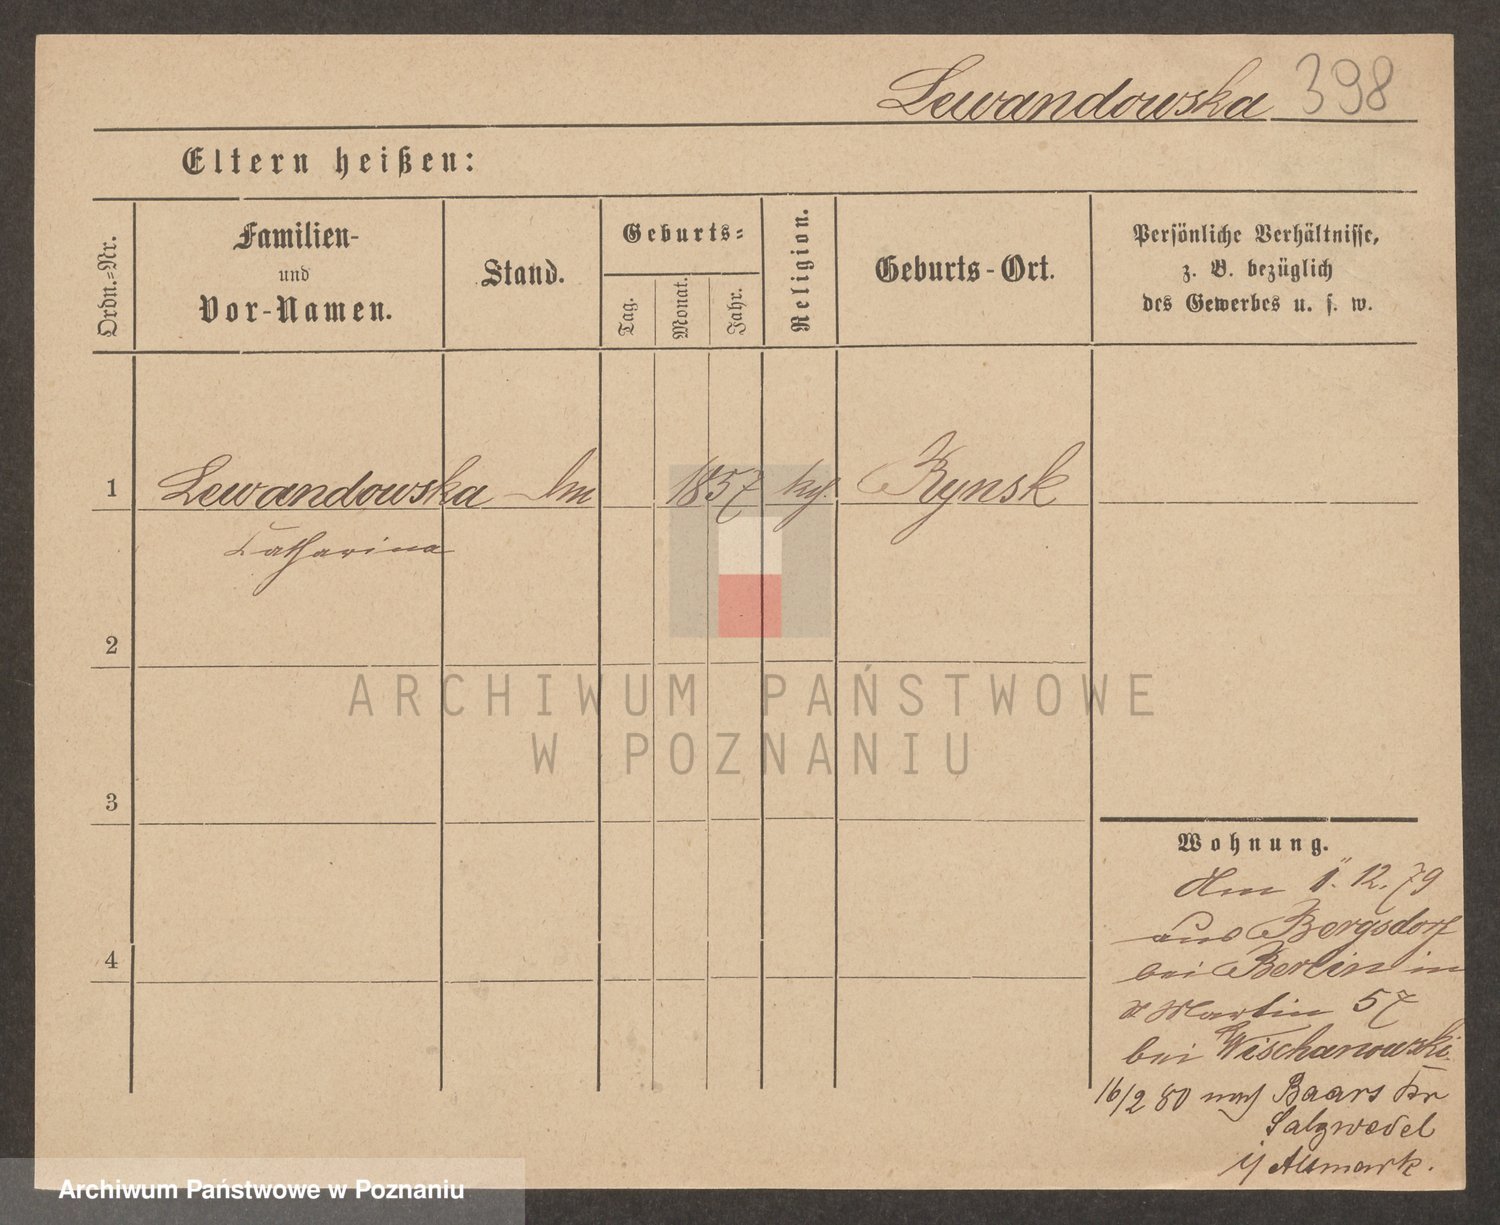 Lewandowska 398
Eltern heißen:
Ordn.-Nr.
Familien-
und
Vor-Namen.
Stand.
Geburts-
Tag.
Monat.
Jahr.
Religion.
Geburts-Ort.
Persönliche Verhältnisse,
z. B. bezüglich
des Gewerbes u. s. w.
1 Lewandowska 1857 Rynsk
Catharina
2
3
4
ARCHIWUM PAŃSTWOWE
W POZNANIU
Wohnung.
Am 1. 12. 79
aus Bergsdorf
bei Berlin in
St Martin 57
bei Wischanowski
16/2 80 nach Baars Kr
Salzwedel
i/ Altmark.
Archiwum Państwowe w Poznaniu